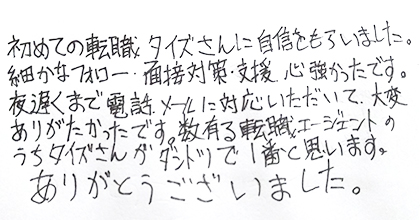 初めての転職、タイズさんに自信をもらいました。
細かなフォロー・面接対策・支援、心強かったです。
夜遅くまで電話、メールに対応いただいて、大変
ありがたかったです。数有る転職エージェントの
うちタイズさんがダントツで1番と思います。
ありがとうございました。